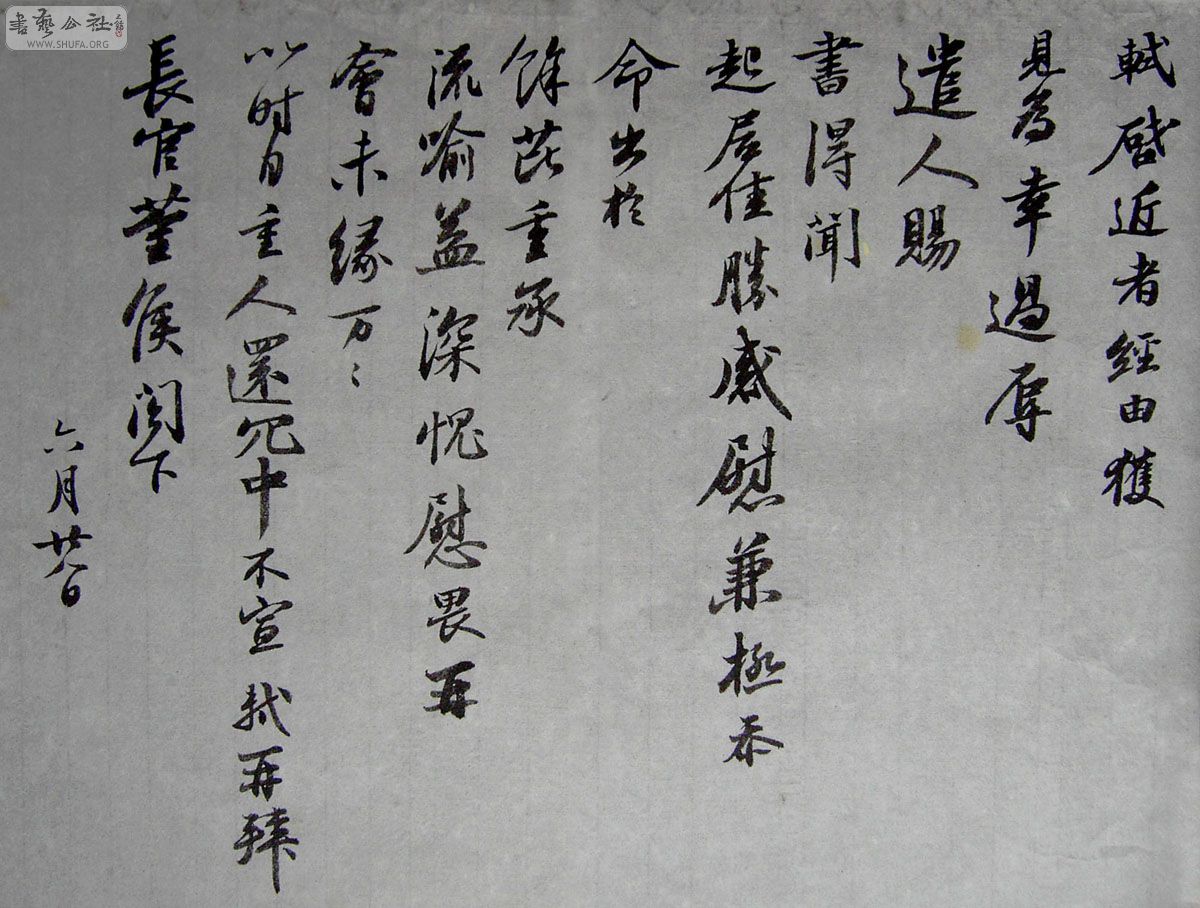 軾啓近者經由獲
見為幸過辱
遣人賜
書得聞
起居佳勝感慰兼極忝
命出於
餘芘重承
流喻益深愧慰畏再
會未緣万〻
以时自重人還冗中不宣 軾再拜
長官董侯閣下
六月廿八日
書藝公社
WWW.SHUFA.ORG